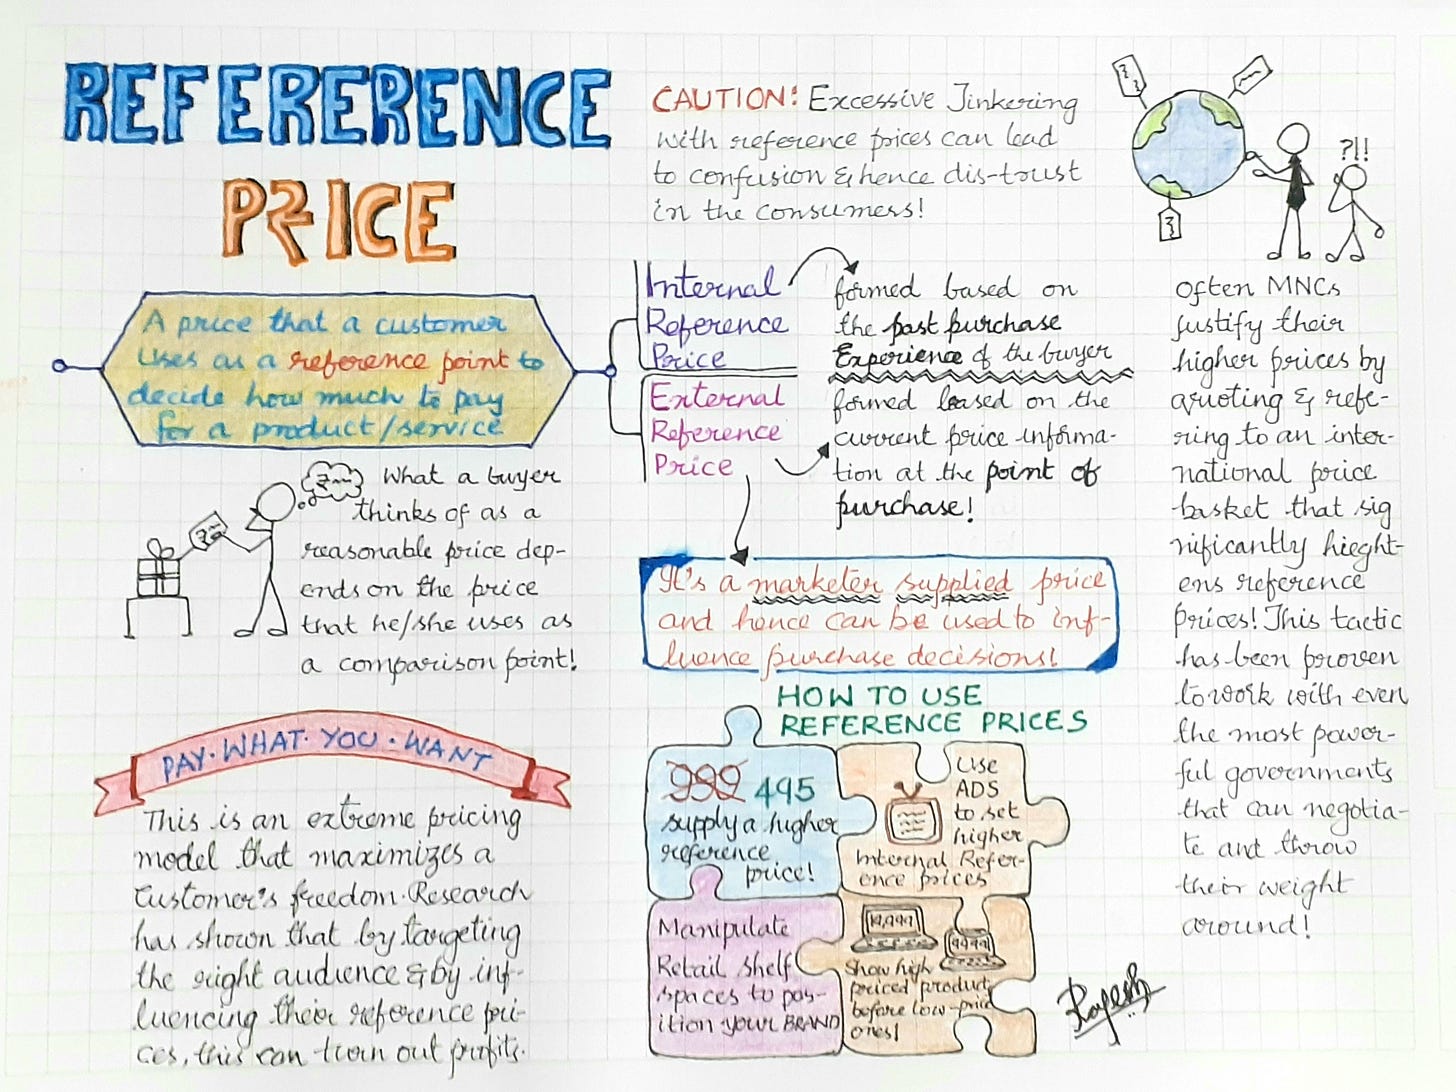 REFERERENCE
PR₹ICE
A price that a customer
uses as a reference point to
decide how much to pay
for a product/service
What a buyer
thinks of as a
reasonable price dep-
ends on the price
that he/she uses as
a comparison point!
PAY·WHAT·YOU·WANT
This is an extreme pricing
model that maximizes a
Customer's freedom. Research
has shown that by targeting
the right audience & by inf-
luencing their reference pri-
ces, this can turn out profits.
CAUTION: Excessive Tinkering
with reference prices can lead
to confusion & hence dis-trust
in the consumers!
Internal
Reference
Price
formed based on
the past purchase
Experience of the buyer
External
Reference
Price
formed based on the
current price informa-
tion at the point of
purchase!
It's a marketer supplied price
and hence can be used to inf-
luence purchase decisions!
HOW TO USE
REFERENCE PRICES
999 495
supply a higher
reference
price!
Use
ADS
to set
higher
Internal Refer-
ence prices
Manipulate
Retail shelf
spaces to pos-
ition your BRAND
Show high
priced product
before low-price
ones!
?!!
often MNCs
justify their
higher prices by
quoting & refe-
ring to an inter-
national price
basket that sig
nificantly hieght-
ens reference
prices! This tactic
has been proven
to work with even
the most power-
ful governments
that can negotia-
te and throw
their weight
around!
Rajesh